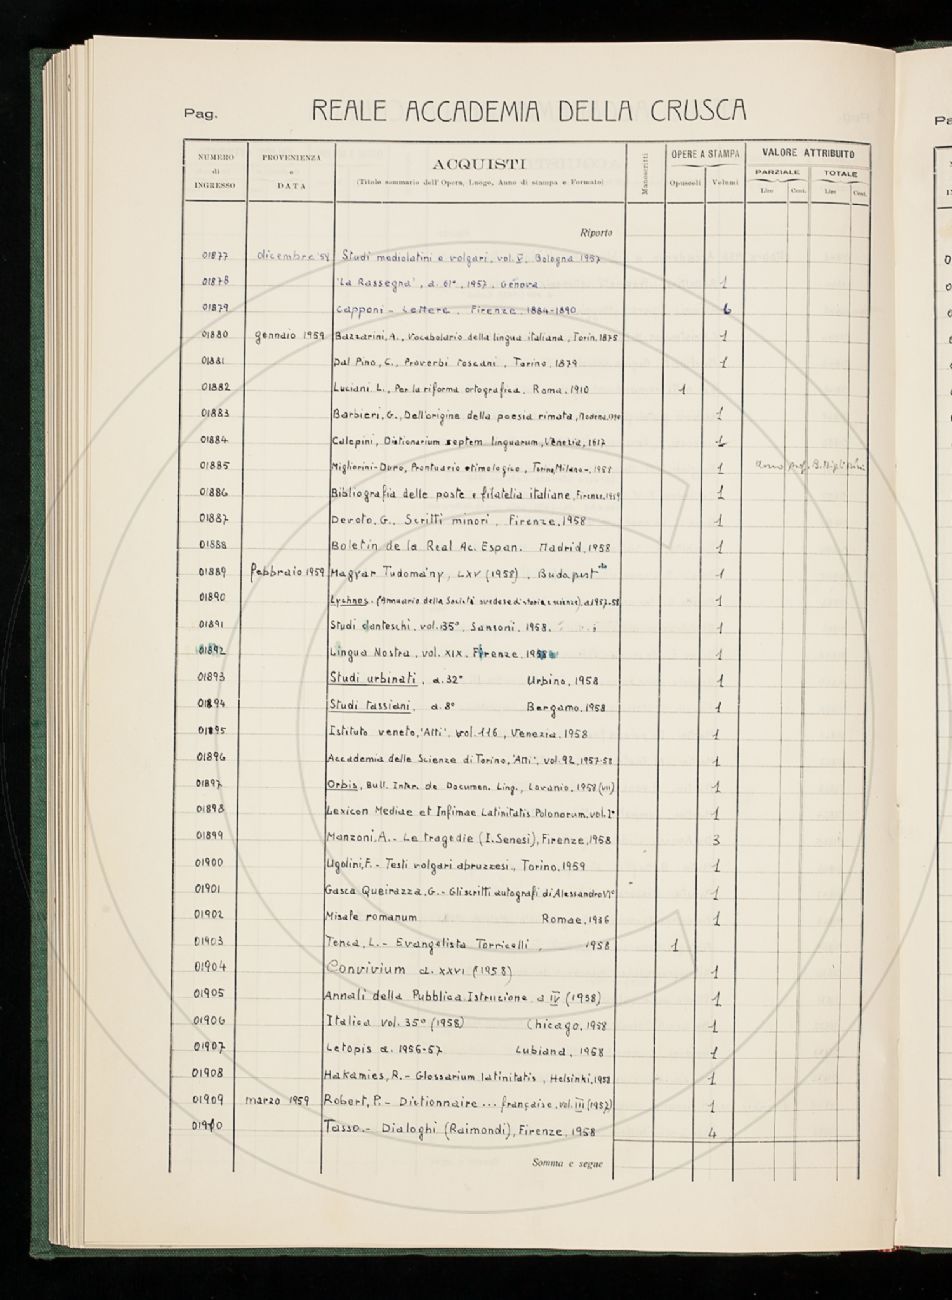 Pag. REALE ACCADEMIA DELLA CRUSCA
NUMERO di INGRESSO PROVENIENZA e DATA ACQUISTI (Titolo sommario dell'Opera, Luogo, Anno di stampa e Formato) Manoscritti OPERE A STAMPA Opuscoli Volumi VALORE ATTRIBUITO PARZIALE Lire Cent. TOTALE Lire Cent.
Riporto
01877 dicembre '58 Studi mediolatini e volgari, vol. V, Bologna 1957
01878 'La Rassegna', a. 61°, 1957, Genova 1
01879 Capponi - Lettere, Firenze, 1884-1890 6
01880 gennaio 1959 Bazzarini, A., Vocabolario della lingua italiana, Torin. 1875 1
01881 Dal Pino, C., Proverbi toscani, Torino, 1879 1
01882 Luciani L., Per la riforma ortografica, Roma, 1910 1
01883 Barbieri, G., Dell'origine della poesia rimata, Modena, 1790 1
01884 Calepini, Dictionarium septem linguarum, Venezia, 1617 1
01885 Migliorini-Duro, Prontuario etimologico, Torino, Milano-, 1958 1 prof. B.
01886 Bibliografia delle poste e filatelia italiane, Firenze, 1959 1
01887 Devoto, G., Scritti minori, Firenze, 1958 1
01888 Boletín de la Real Ac. Espan. Madrid, 1958 1
01889 febbraio 1959 Magyar Tudomány, LXV (1958), Budapest 1
01890 Lychnos. (Annuario della Società svedese di storia e scienze), a. 1957-58 1
01891 Studi danteschi, vol. 35°, Sansoni, 1958. 1
01892 Lingua Nostra, vol. XIX, Firenze, 1958 1
01893 Studi urbinati, a. 32° Urbino, 1958 1
01894 Studi tassiani, a. 8° Bergamo, 1958 1
01895 Istituto veneto, 'Atti', vol. 116, Venezia, 1958 1
01896 Accademia delle Scienze di Torino, 'Atti', vol. 92, 1957-58 1
01897 Orbis, Bull. Inter. de Documen. Ling., Lovanio, 1958 (VII) 1
01898 Lexicon Mediae et Infimae Latinitatis Polonorum, vol. 1° 1
01899 Manzoni, A. - Le tragedie (I. Senesi), Firenze, 1958 3
01900 Ugolini, F. - Testi volgari abruzzesi., Torino, 1959 1
01901 Gasca Queirazza, G. - Gli scritti autografi di Alessandro VI° 1
01902 Misale romanum Romae, 1936 1
01903 Tenca, L. - Evangelista Torricelli, 1958 1
01904 Convivium a. XXVI (1958) 1
01905 Annali della Pubblica Istruzione a IV (1958) 1
01906 Italica vol. 35° (1958) Chicago, 1958 1
01907 Letopis a. 1956-57 Lubiana, 1958 1
01908 Hakamies, R. - Glossarium latinitatis, Helsinki, 1958 1
01909 marzo 1959 Robert, P. - Dictionnaire ... française, vol. III (1957) 1
01910 Tasso. - Dialoghi (Raimondi), Firenze, 1958 4
Somma e segue